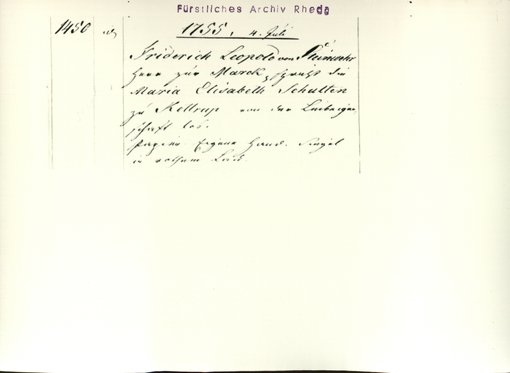 Fürstliches Archiv Rheda
1450
1755, 4. Juli
Friderich Leopold von
Herr zur Marck, spricht die
Maria Elisabeth Schulten
zu Kettrup von der Leibeigen
schaft los.
Papier. Eigene Hand. Siegel
in rothem Lack